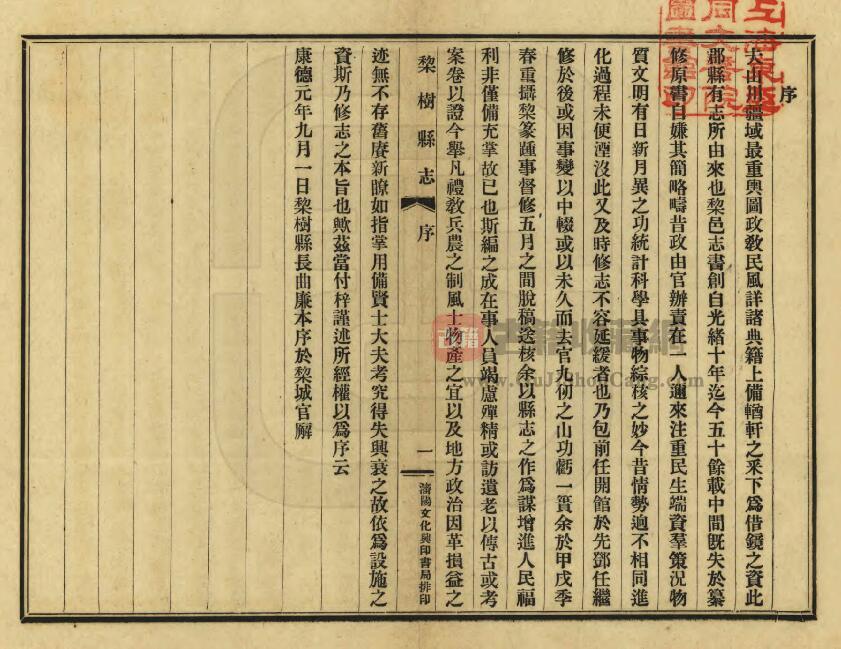 序
夫山川疆域最重輿圖政敎民風詳諸典籍上備輶軒之釆下爲借鏡之資此
郡縣有志所由來也黎邑志書創自光緒十年迄今五十餘載中間旣失於纂
修原書自嫌其簡略疇昔政由官辦責在一人邇來注重民生端資羣策況物
質文明有日新月異之功統計科學具事物綜核之妙今昔情勢逈不相同進
化過程未便湮沒此又及時修志不容延緩者也乃包前任開館於先鄧任繼
修於後或因事變以中輟或以未久而去官九仞之山功虧一簣余於甲戌季
春重攝黎篆踵事督修五月之間脫稿送核余以縣志之作爲謀增進人民福
利非僅備充掌故已也斯編之成在事人員竭慮殫精或訪遺老以傳古或考
案卷以證今舉凡禮敎兵農之制風土物產之宜以及地方政治因革損益之
黎樹縣志 序 一 瀋陽文化興印書局排印
迹無不存舊賡新瞭如指掌用備賢士大夫考究得失興衰之故依爲設施之
資斯乃修志之本旨也歟茲當付梓謹述所經權以爲序云
康德元年九月一日黎樹縣長曲廉本序於黎城官廨
古籍收藏網
www.GuJiShouCang.com